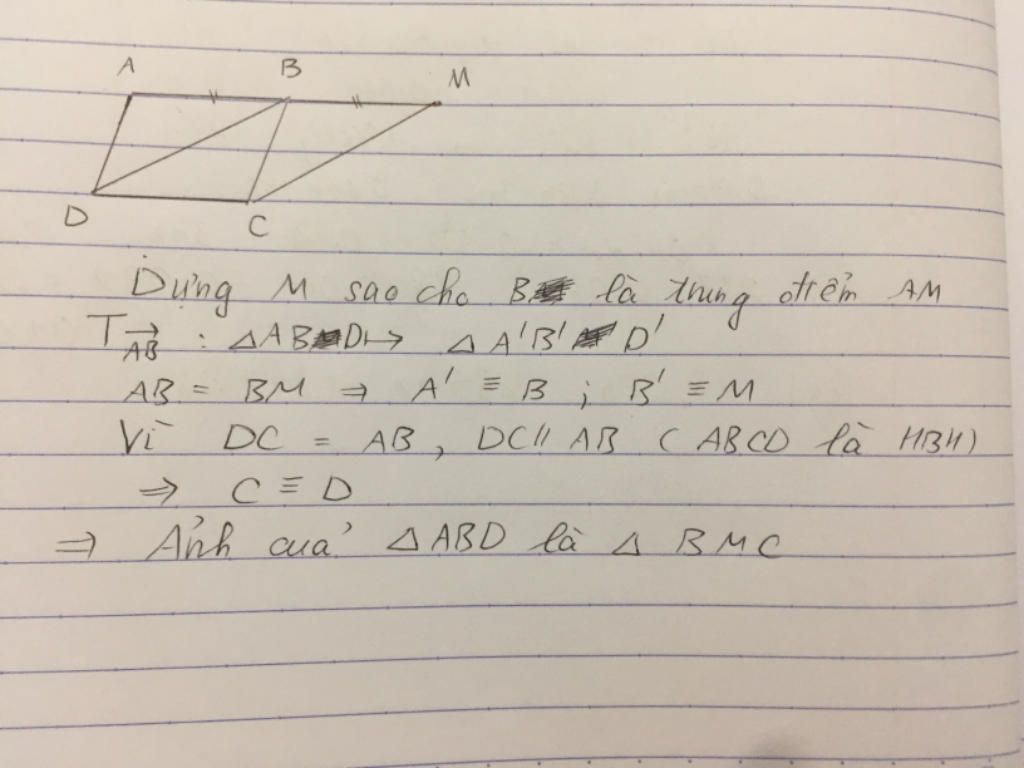 A B M
D C
Dựng M sao cho B là trung điểm AM
T→AB : △ABD↦ △A'B'D'
AB = BM ⇒ A' ≡ B ; B' ≡ M
Vì DC = AB, DC // AB (ABCD là HBH)
⇒ C ≡ D
⇒ Ảnh của △ABD là △ BMC